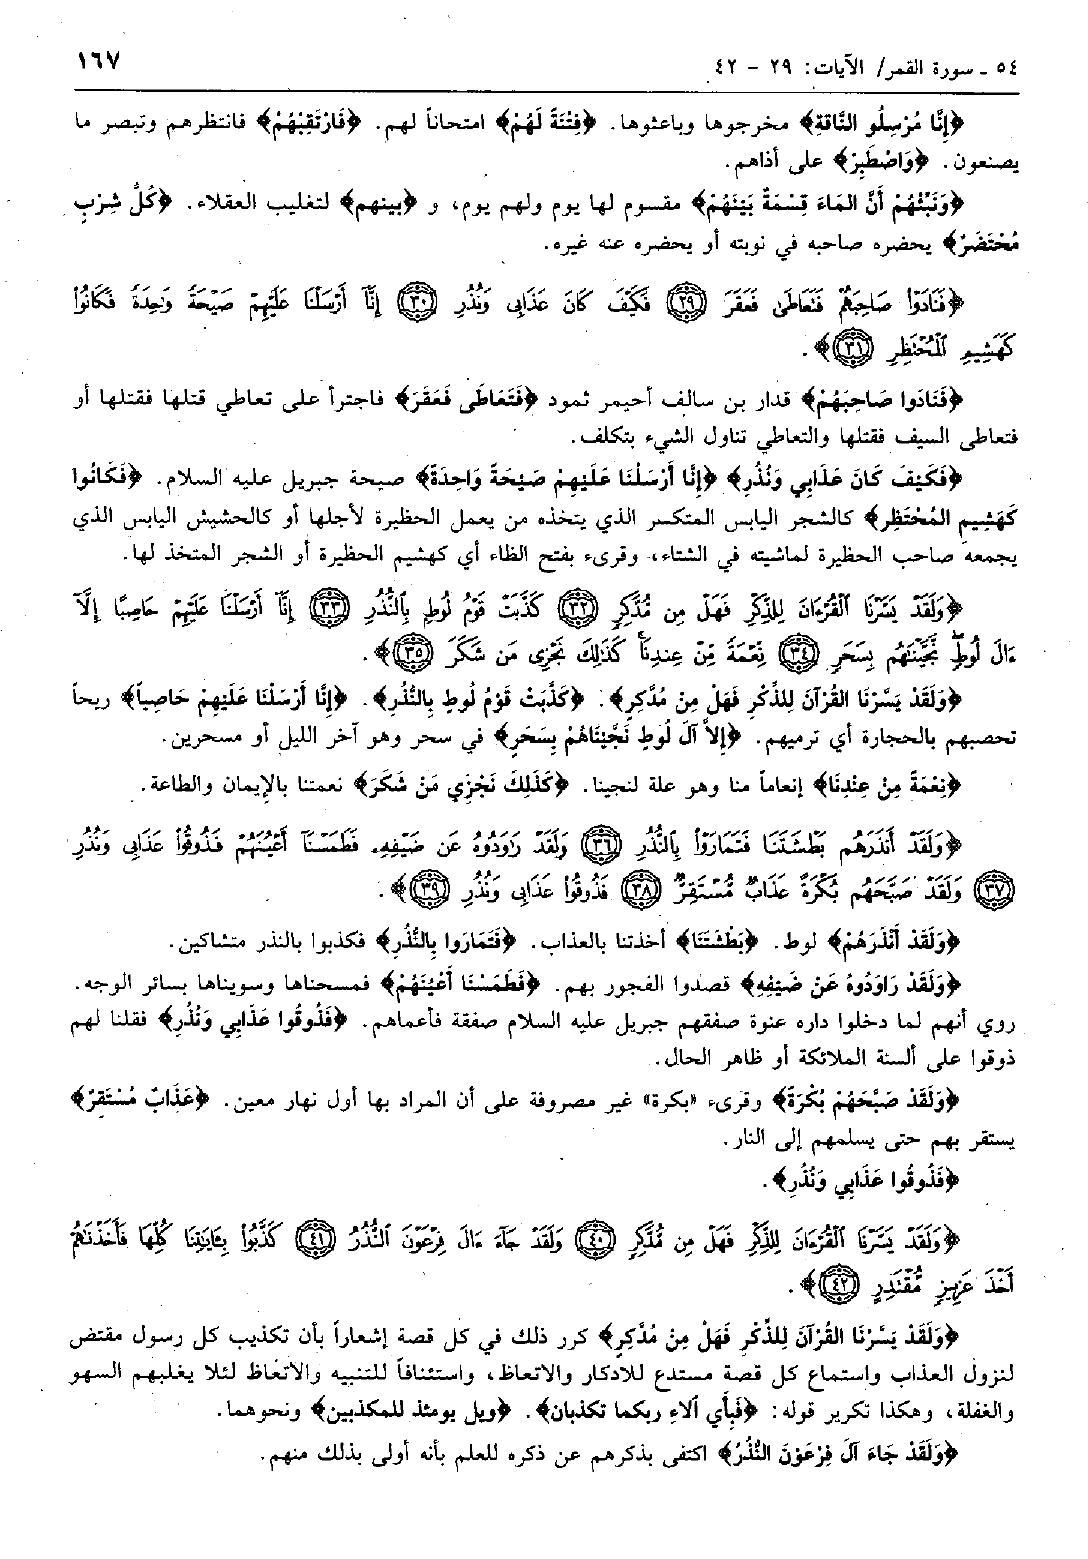 ٥٤ ـ سورة القمر/ الآيات: ٢٩ - ٤٢
١٦٧
﴿إِنَّا مُرْسِلُو النَّاقَةِ﴾ مخرجوها وباعثوها. ﴿فِتْنَةً لَهُمْ﴾ امتحاناً لهم. ﴿فَارْتَقِبْهُمْ﴾ فانتظرهم وتبصر ما
يصنعون. ﴿وَاصْطَبِرْ﴾ على أذاهم.
﴿وَنَبِّئْهُمْ أَنَّ المَاءَ قِسْمَةٌ بَيْنَهُمْ﴾ مقسوم لها يوم ولهم يوم، و ﴿بينهم﴾ لتغليب العقلاء. ﴿كُلُّ شِرْبٍ
مُحْتَضَرٌ﴾ يحضره صاحبه في نوبته أو يحضره عنه غيره.
﴿فَنَادَوْا۟ صَاحِبَهُمْ فَتَعَاطَىٰ فَعَقَرَ ﴿٢٩﴾ فَكَيْفَ كَانَ عَذَابِى وَنُذُرِ ﴿٣٠﴾ إِنَّآ أَرْسَلْنَا عَلَيْهِمْ صَيْحَةً وَٰحِدَةً فَكَانُوا۟
كَهَشِيمِ ٱلْمُحْتَظِرِ ﴿٣١﴾﴾.
﴿فَنَادَوا صَاحِبَهُمْ﴾ قدار بن سالف أحيمر ثمود ﴿فَتَعَاطَى فَعَقَرَ﴾ فاجترأ على تعاطي قتلها فقتلها أو
فتعاطى السيف فقتلها والتعاطي تناول الشيء بتكلف.
﴿فَكَيْفَ كَانَ عَذَابِي وَنُذُرِ﴾ ﴿إِنَّا أَرْسَلْنَا عَلَيْهِمْ صَيْحَةً وَاحِدَةً﴾ صيحة جبريل عليه السلام. ﴿فَكَانُوا
كَهَشِيمِ المُحْتَظِرِ﴾ كالشجر اليابس المتكسر الذي يتخذه من يعمل الحظيرة لأجلها أو كالحشيش اليابس الذي
يجمعه صاحب الحظيرة لماشيته في الشتاء، وقرىء بفتح الظاء أي كهشيم الحظيرة أو الشجر المتخذ لها.
﴿وَلَقَدْ يَسَّرْنَا ٱلْقُرْءَانَ لِلذِّكْرِ فَهَلْ مِن مُّدَّكِرٍ ﴿٣٢﴾ كَذَّبَتْ قَوْمُ لُوطٍۭ بِٱلنُّذُرِ ﴿٣٣﴾ إِنَّآ أَرْسَلْنَا عَلَيْهِمْ حَاصِبًا إِلَّآ
ءَالَ لُوطٍۖ نَّجَّيْنَٰهُم بِسَحَرٍ ﴿٣٤﴾ نِعْمَةً مِّنْ عِندِنَاۚ كَذَٰلِكَ نَجْزِى مَن شَكَرَ ﴿٣٥﴾﴾.
﴿وَلَقَدْ يَسَّرْنَا القُرْآنَ لِلذِّكْرِ فَهَلْ مِنْ مُدَّكِرٍ﴾. ﴿كَذَّبَتْ قَوْمُ لُوطٍ بِالنُّذُرِ﴾. ﴿إِنَّا أَرْسَلْنَا عَلَيْهِمْ حَاصِباً﴾ ريحاً
تحصبهم بالحجارة أي ترميهم. ﴿إِلاَّ آلَ لُوطٍ نَجَّيْنَاهُمْ بِسَحَرٍ﴾ في سحر وهو آخر الليل أو مسحرين.
﴿نِعْمَةً مِنْ عِنْدِنَا﴾ إنعاماً منا وهو علة لنجينا. ﴿كَذَلِكَ نَجْزِي مَنْ شَكَرَ﴾ نعمتنا بالإِيمان والطاعة.
﴿وَلَقَدْ أَنذَرَهُم بَطْشَتَنَا فَتَمَارَوْا۟ بِٱلنُّذُرِ ﴿٣٦﴾ وَلَقَدْ رَٰوَدُوهُ عَن ضَيْفِهِۦ فَطَمَسْنَآ أَعْيُنَهُمْ فَذُوقُوا۟ عَذَابِى وَنُذُرِ
﴿٣٧﴾ وَلَقَدْ صَبَّحَهُم بُكْرَةً عَذَابٌ مُّسْتَقِرٌّ ﴿٣٨﴾ فَذُوقُوا۟ عَذَابِى وَنُذُرِ ﴿٣٩﴾﴾.
﴿وَلَقَدْ أَنْذَرَهُمْ﴾ لوط. ﴿بَطْشَتَنَا﴾ أخذتنا بالعذاب. ﴿فَتَمَارَوا بِالنُّذُرِ﴾ فكذبوا بالنذر متشاكين.
﴿وَلَقَدْ رَاوَدُوهُ عَنْ ضَيْفِهِ﴾ قصدوا الفجور بهم. ﴿فَطَمَسْنَا أَعْيُنَهُمْ﴾ فمسحناها وسويناها بسائر الوجه.
روي أنهم لما دخلوا داره عنوة صفقهم جبريل عليه السلام صفقة فأعماهم. ﴿فَذُوقُوا عَذَابِي وَنُذُرِ﴾ فقلنا لهم
ذوقوا على ألسنة الملائكة أو ظاهر الحال.
﴿وَلَقَدْ صَبَّحَهُمْ بُكْرَةً﴾ وقرىء «بكرة» غير مصروفة على أن المراد بها أول نهار معين. ﴿عَذَابٌ مُسْتَقِرٌ﴾
يستقر بهم حتى يسلمهم إلى النار.
﴿فَذُوقُوا عَذَابِي وَنُذُرِ﴾.
﴿وَلَقَدْ يَسَّرْنَا ٱلْقُرْءَانَ لِلذِّكْرِ فَهَلْ مِن مُّدَّكِرٍ ﴿٤٠﴾ وَلَقَدْ جَآءَ ءَالَ فِرْعَوْنَ ٱلنُّذُرُ ﴿٤١﴾ كَذَّبُوا۟ بِـَٔايَٰتِنَا كُلِّهَا فَأَخَذْنَٰهُمْ
أَخْذَ عَزِيزٍ مُّقْتَدِرٍ ﴿٤٢﴾﴾.
﴿وَلَقَدْ يَسَّرْنَا القُرْآنَ لِلذِّكْرِ فَهَلْ مِنْ مُدَّكِرٍ﴾ كرر ذلك في كل قصة إشعاراً بأن تكذيب كل رسول مقتض
لنزول العذاب واستماع كل قصة مستدع للادكار والاتعاظ، واستئنافاً للتنبيه والاتعاظ لئلا يغلبهم السهو
والغفلة، وهكذا تكرير قوله: ﴿فَبِأي ألاءِ ربكما تكذبان﴾. ﴿ويل يومئذ للمكذبين﴾ ونحوهما.
﴿وَلَقَدْ جَاءَ آلَ فِرْعَوْنَ النُّذُرُ﴾ اكتفى بذكرهم عن ذكره للعلم بأنه أولى بذلك منهم.